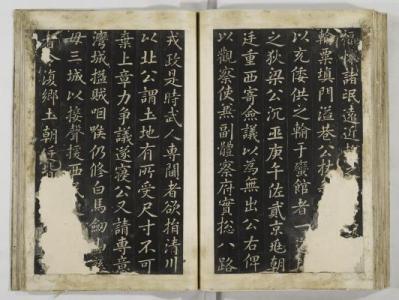 諸氓遠近
輪粟填門溢巷公
以充倭供之輸于蠻館者一
之狄梁公沉巫庚午佐貳京兆朝
廷重西寄僉議以為無出公右俾
以觀察使無副體察府實揔八路
戎政是時武人專閫者欲捐清川
以北公謂土地有所受尺寸不可
棄上章力爭議遂寢公又請專意
灣城搤賊咽喉仍修白馬
三城以接聲援西
復鄉土朝